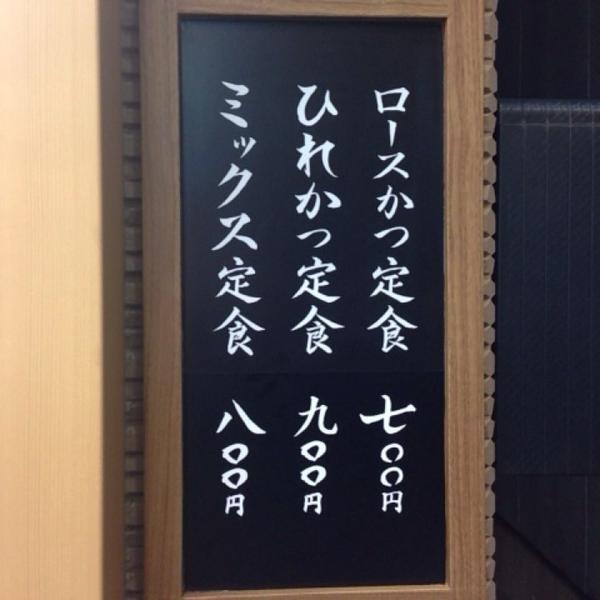 ロースかつ定食 七〇〇円
ひれかつ定食 九〇〇円
ミックス定食 八〇〇円